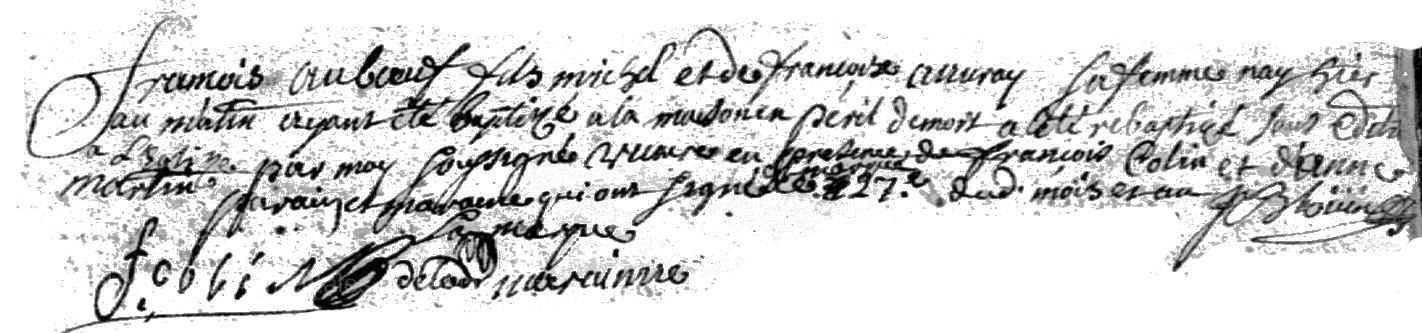 francois auboeuf fils michel et de francoize auuray sa femme nay hier
au matin ayant ete baptize a la maison en peril de mort a été rebaptizé sous
a L'Eglise par moy soussigné vicaire en presence de francois Colin et d'anne
martin parain et maraine qui ont signé le 27.e dud. mois et an
La marque
f. coli de lad maraine